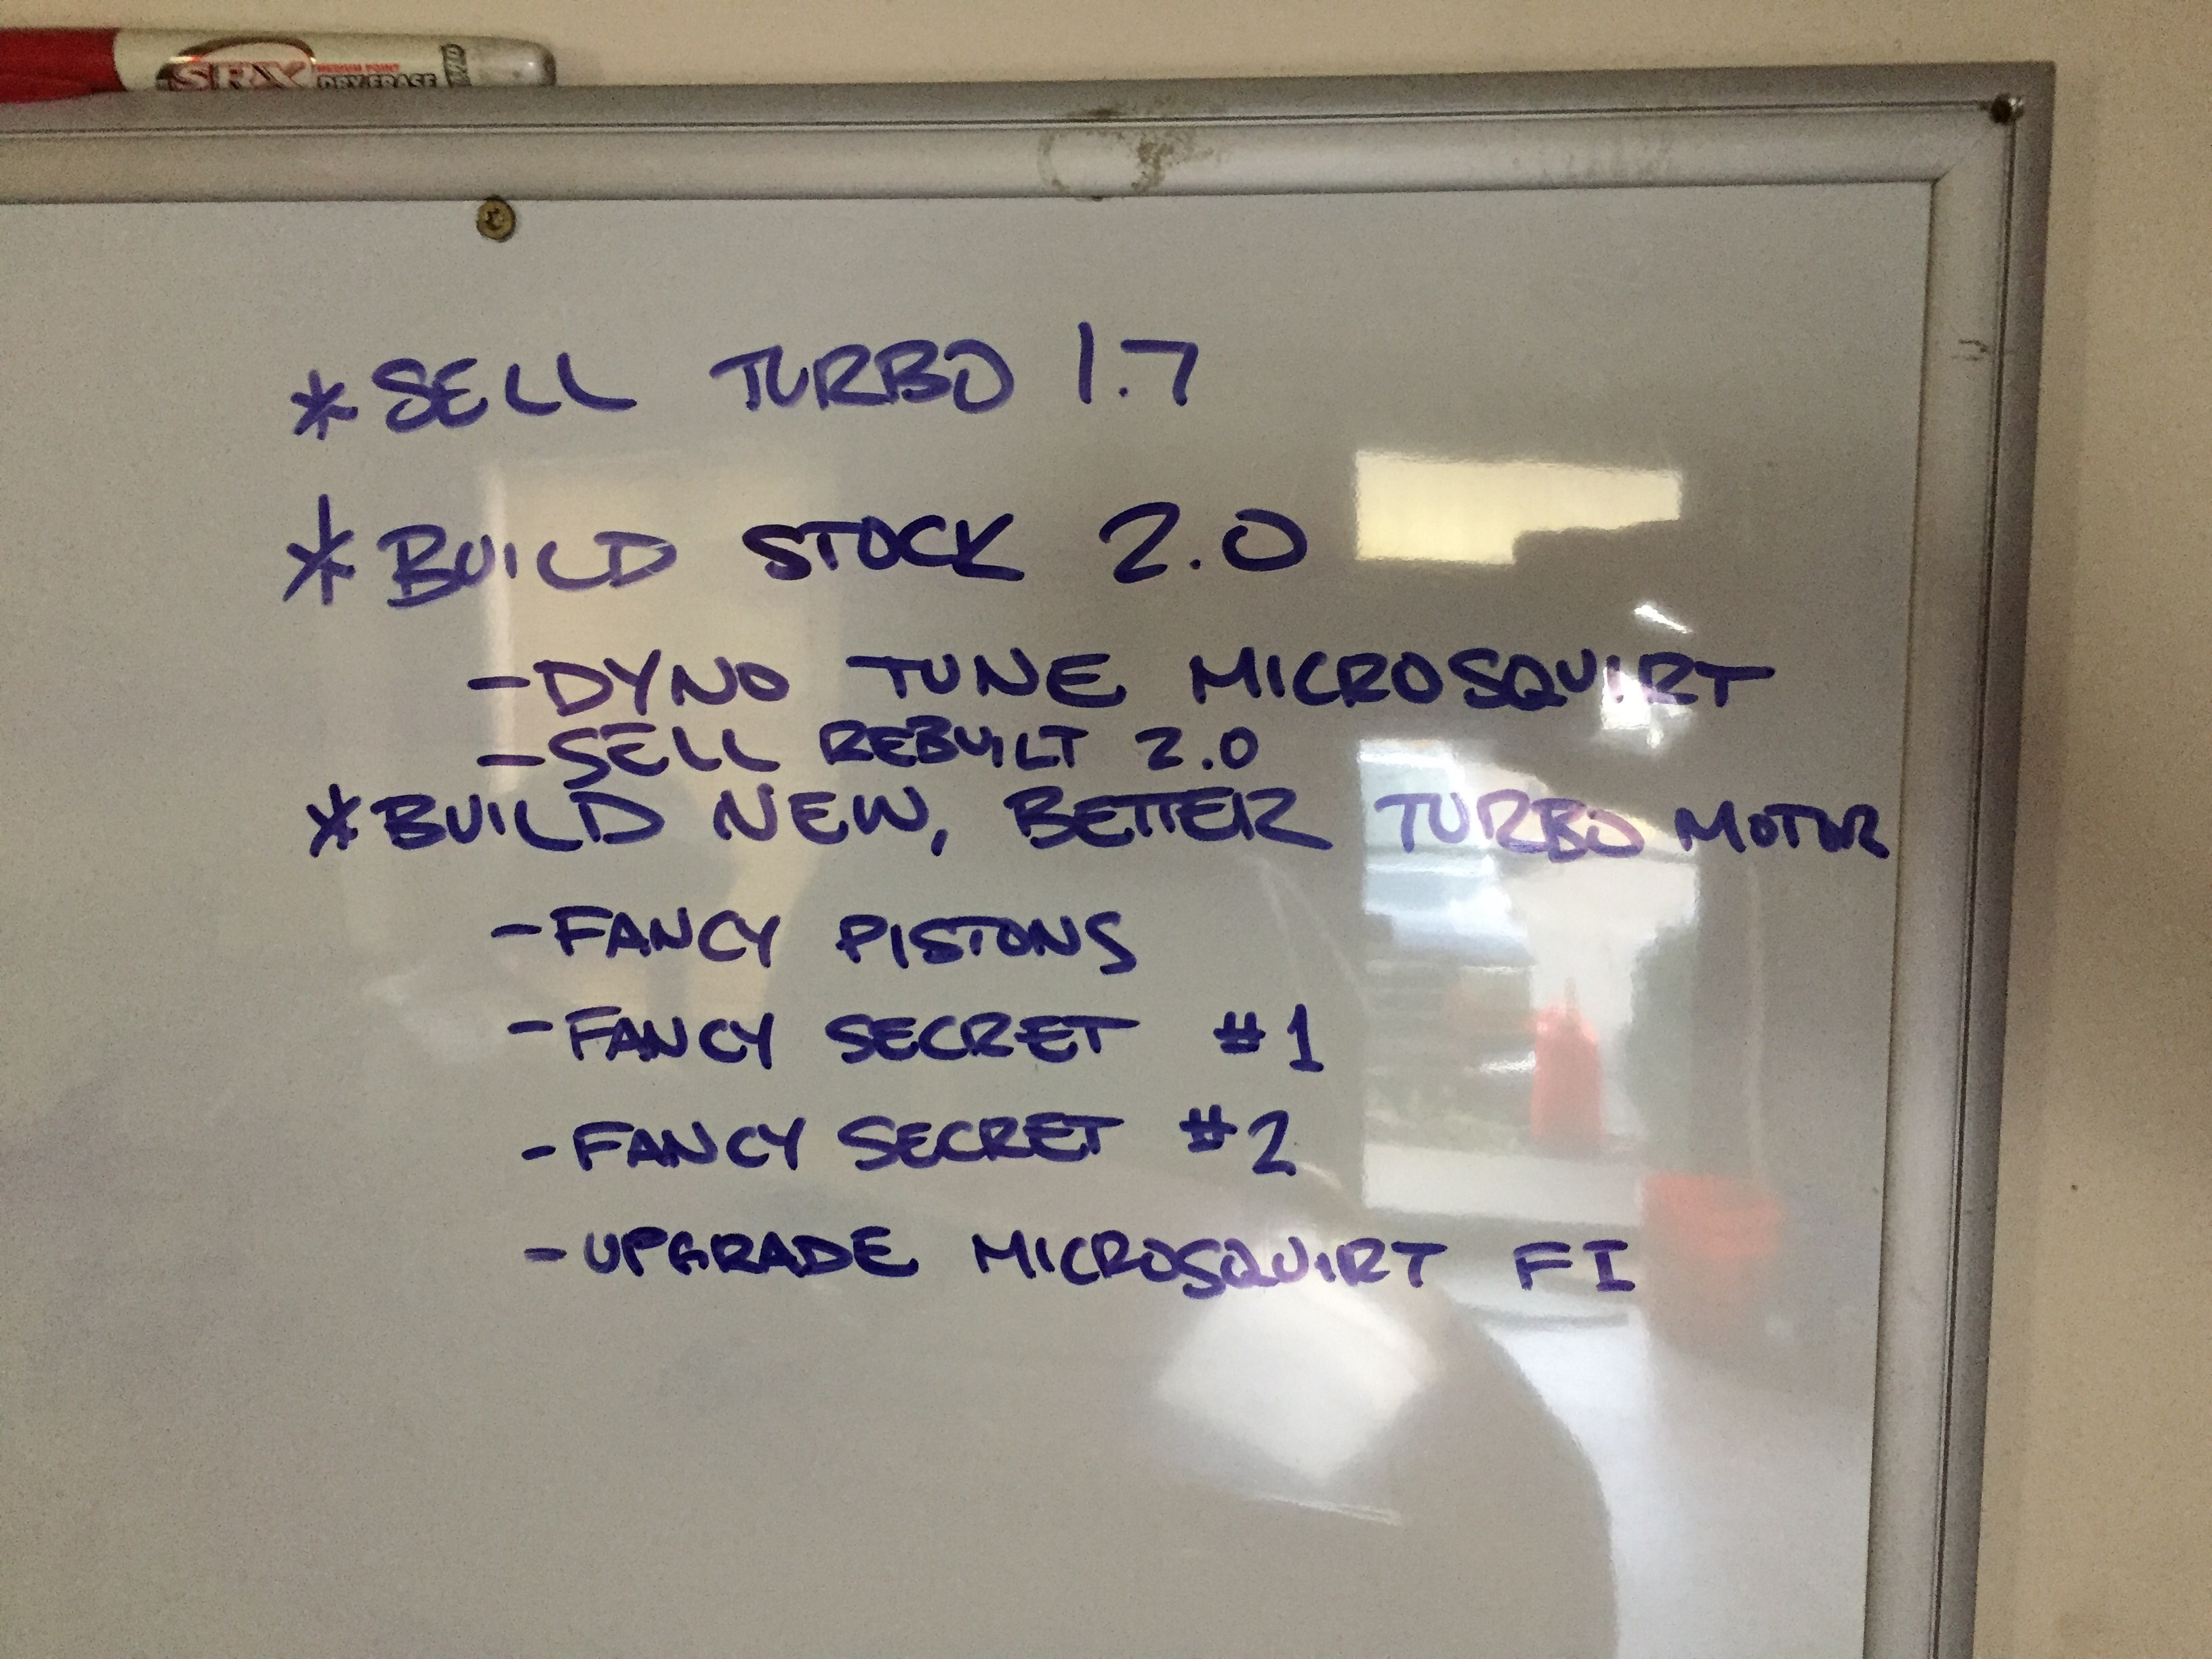 SRX MEDIUM POINT
DRY ERASE
*SELL TURBO 1.7
*BUILD STOCK 2.0
-DYNO TUNE MICROSQUIRT
-SELL REBUILT 2.0
*BUILD NEW, BETTER TURBO MOTOR
-FANCY PISTONS
-FANCY SECRET #1
-FANCY SECRET #2
-UPGRADE MICROSQUIRT FI